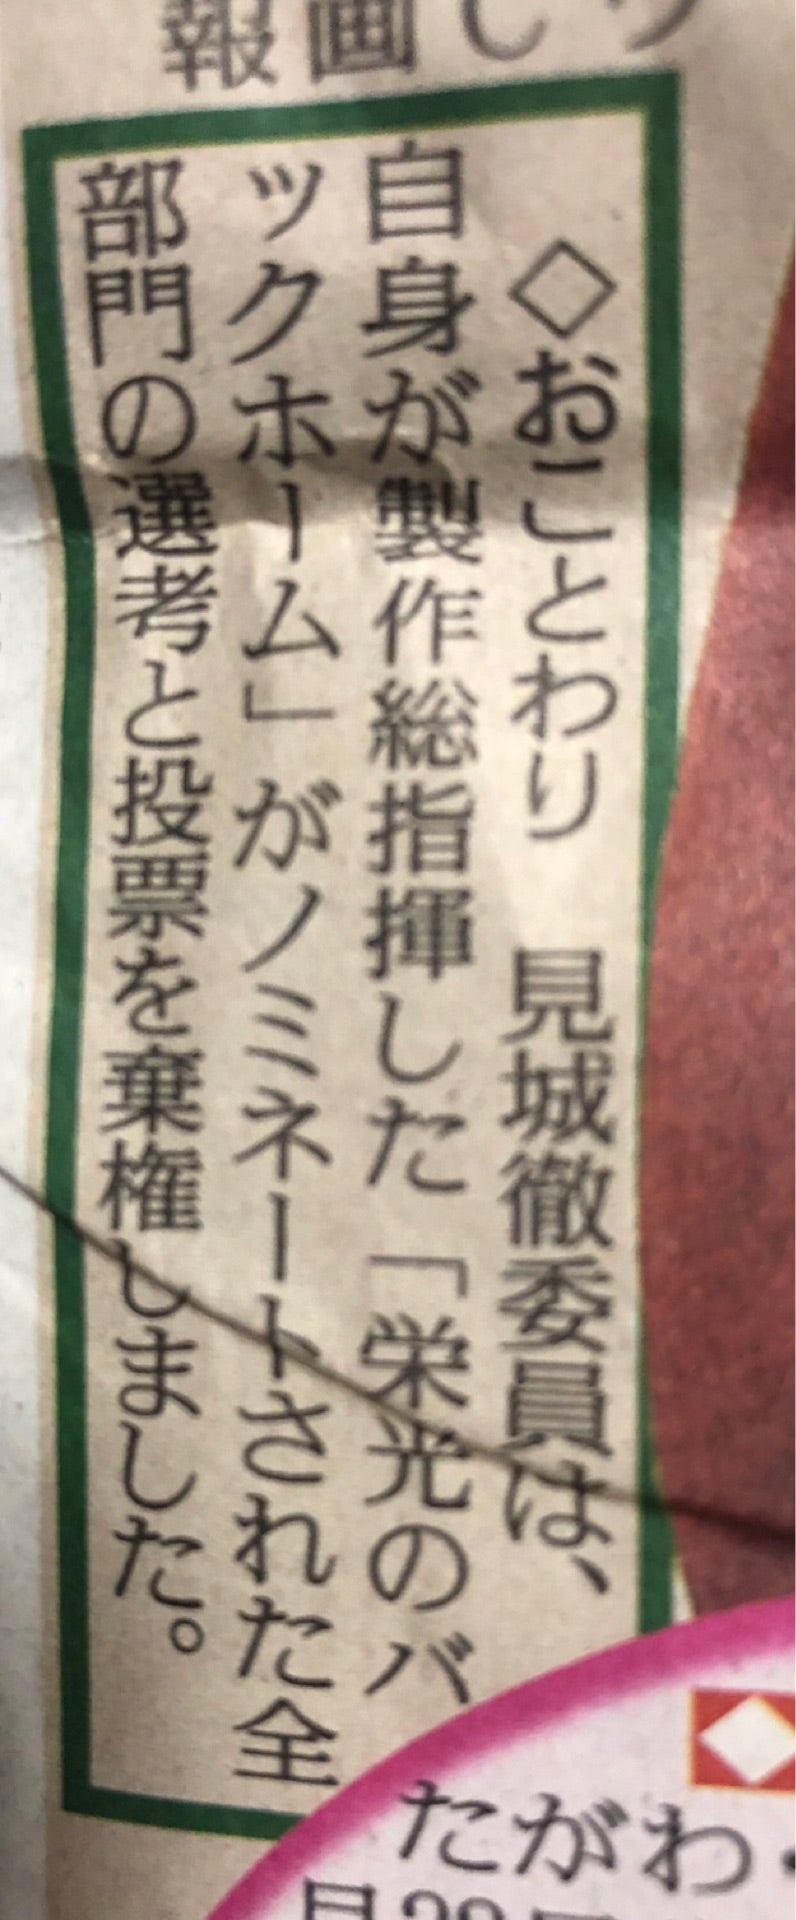 報
画
し
◇おことわり　見城徹委員は、
自身が製作総指揮した「栄光のバ
ックホーム」がノミネートされた全
部門の選考と投票を棄権しました。
たがわ・